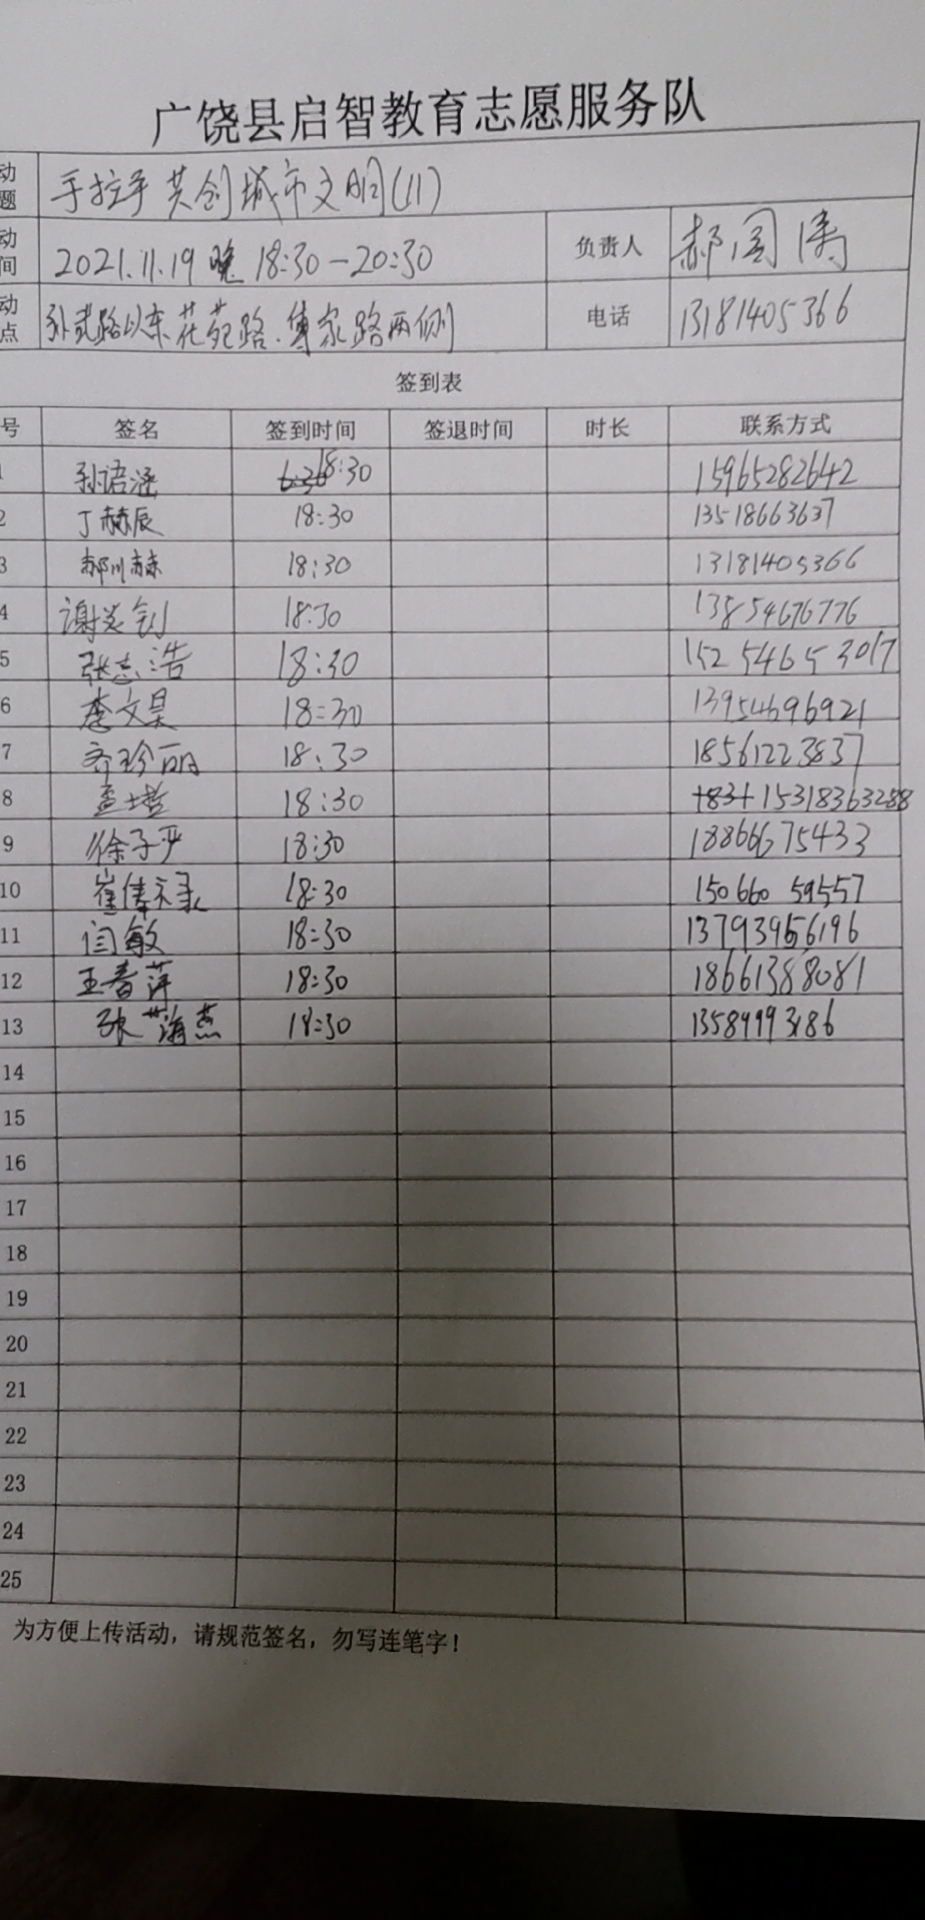 广饶县启智教育志愿服务队
动题 手拉手 共创城市文明(11)
动间 2021.11.19 晚 18:30-20:30 负责人 郝国涛
动点 孙武路以东花苑路、傅家路两侧 电话 13181405366
签到表
号 签名 签到时间 签退时间 时长 联系方式
1 孙语涵 18:30 15965282642
2 丁赫辰 18:30 13518663637
3 郝川赫 18:30 13181405366
4 谢炎钊 18:30 13854676776
5 张志浩 18:30 15254653017
6 李文昊 18:30 13954696921
7 齐珍丽 18:30 18561223837
8 18:30 15318363288
9 徐子尹 18:30 18866675433
10 崔俸禄 18:30 15066059557
11 闫敏 18:30 13793956196
12 王春萍 18:30 18661388081
13 张海燕 18:30 13589993186
14
15
16
17
18
19
20
21
22
23
24
25
为方便上传活动，请规范签名，勿写连笔字！